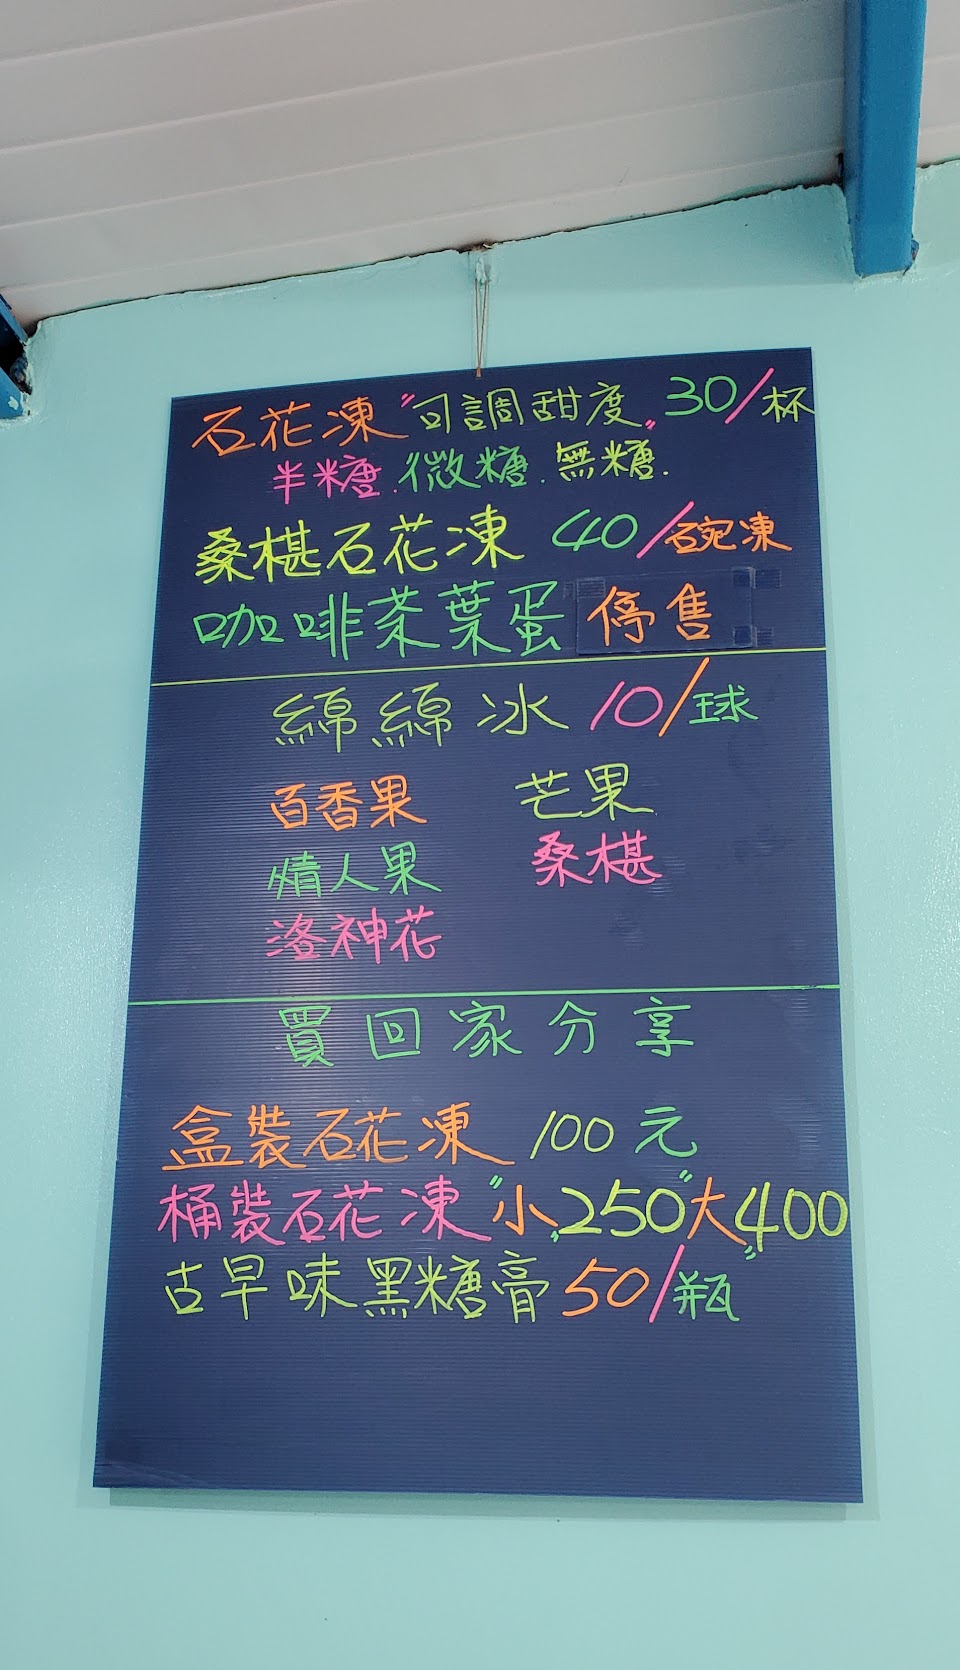 石花凍"可調甜度"30/杯
半糖.微糖.無糖.
桑椹石花凍 40/碗凍
咖啡茶葉蛋 停售
綿綿冰 10/球
百香果 芒果
情人果 桑椹
洛神花
買回家分享
盒裝石花凍 100元
桶裝石花凍"小"250"大"400
古早味黑糖膏50/瓶